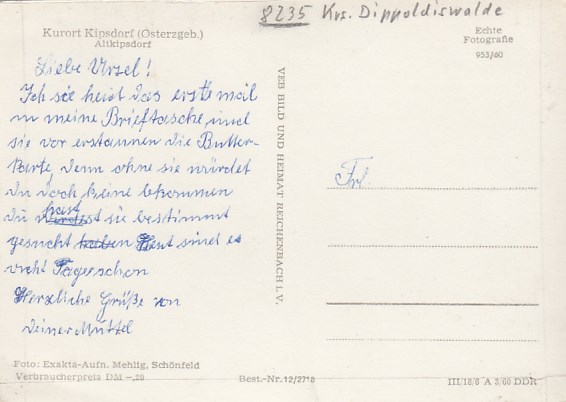 8235 Krs. Dippoldiswalde
Kurort Kipsdorf (Osterzgeb.)
Altkipsdorf
Echte
Fotografie
953/60
Liebe Ursel!
Ich sae heut das erstemal
in meine Brieftasche, und
sie vor erstaunen die Butter-
karte, denn ohne sie würdet
du doch keine bekommen
du hast sie bestimmt
gesucht haben Heut sind es
vicht Tage schon
Herzliche Grüße von
deiner Muttel
Frl.
VEB BILD UND HEIMAT REICHENBACH I. V.
Foto: Exakta-Aufn. Mehlig, Schönfeld
Verbraucherpreis DM -,20
Best.-Nr. 12/2718
III/18/6 A 3/60 DDR